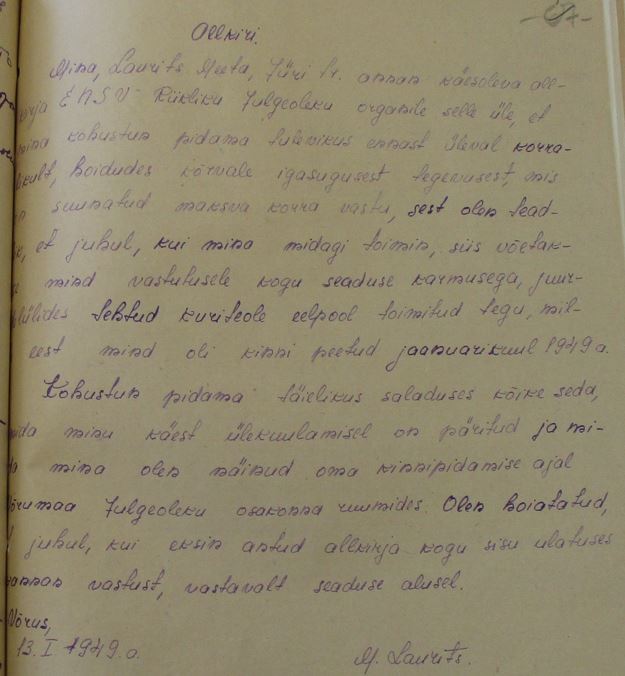 -67-
Allkiri.
Mina, Laurits Meeta, Jüri tr. annan käesoleva all-
kirja ENSV Riikliku Julgeoleku organile selle üle, et
mina kohustun pidama tulevikus ennast üleval korra-
likult, hoidudes kõrvale igasugusest tegevusest, mis
on suunatud maksva korra vastu, sest olen tead-
lik, et juhul, kui mina midagi toimin, siis võetak-
se mind vastutusele kogu seaduse karmusega, juur-
delülides tehtud kuriteole eelpool toimitud tegu, mil-
eest mind oli kinni peetud jaanuarikuul 1949 a.
Kohustun pidama täielikus saladuses kõike seda,
mida minu käest ülekuulamisel on päritud ja mi-
da mina olen näinud oma kinnipidamise ajal
Võrumaa Julgeoleku osakonna ruumides. Olen hoiatatud,
et juhul, kui eksin antud allkirja kogu sisu ulatuses
kannan vastust, vastavalt seaduse alusel.
Võrus,
13. I 1949. a.
M. Laurits.